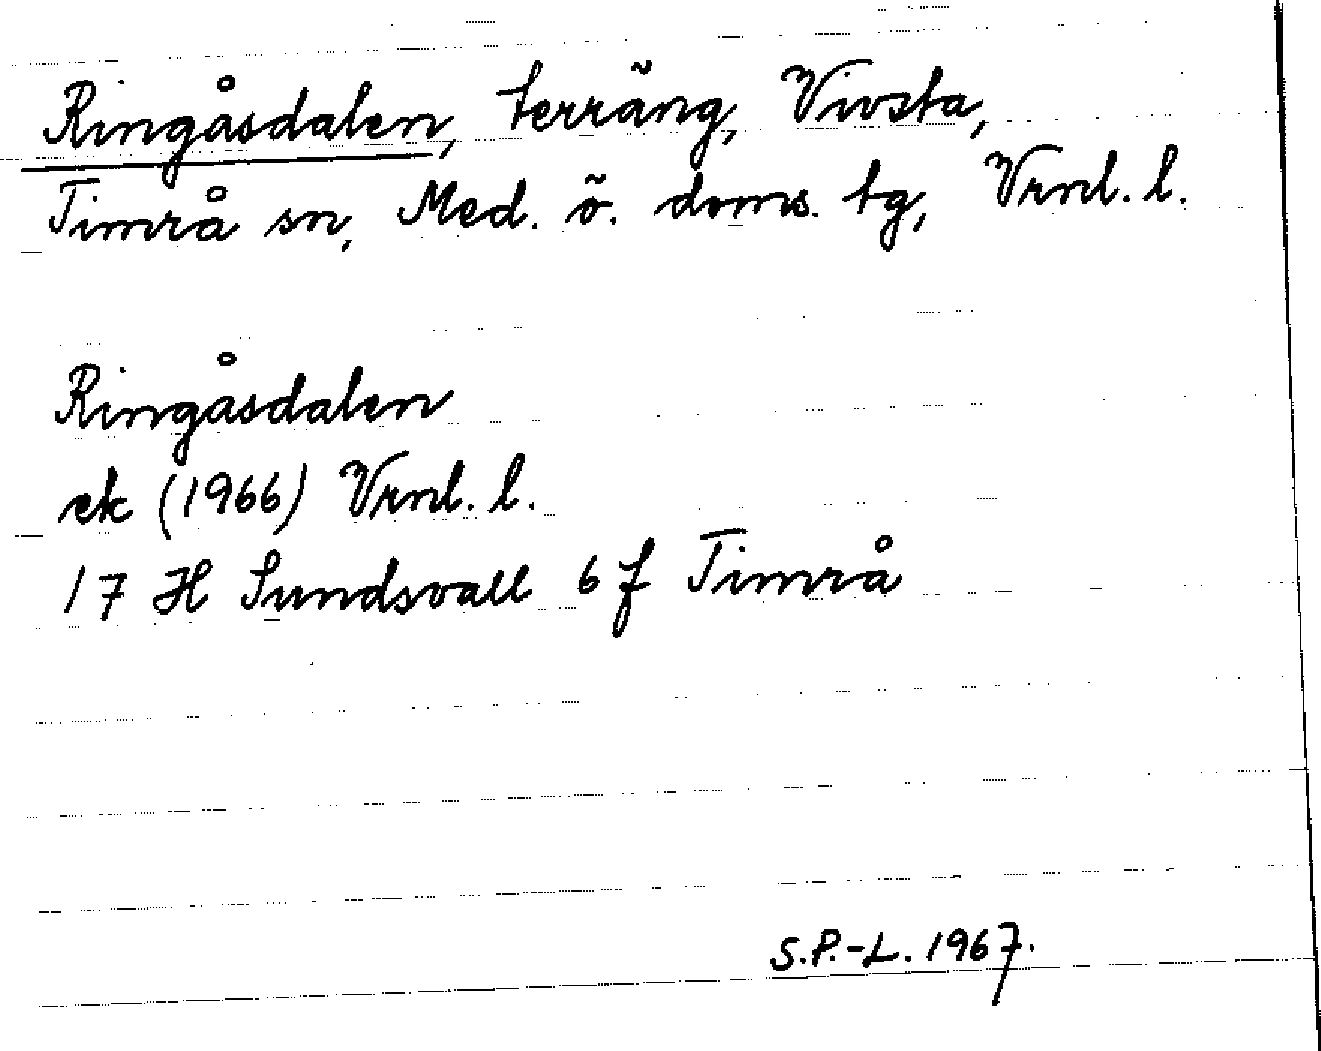 Ringåsdalen, terräng, Vivsta,
Timrå sn, Med. ö. doms. tg, Vrnl. l.
Ringåsdalen
ek (1966) Vrnl. l.
17 H Sundsvall 6 f Timrå
S.P.-L. 1967.